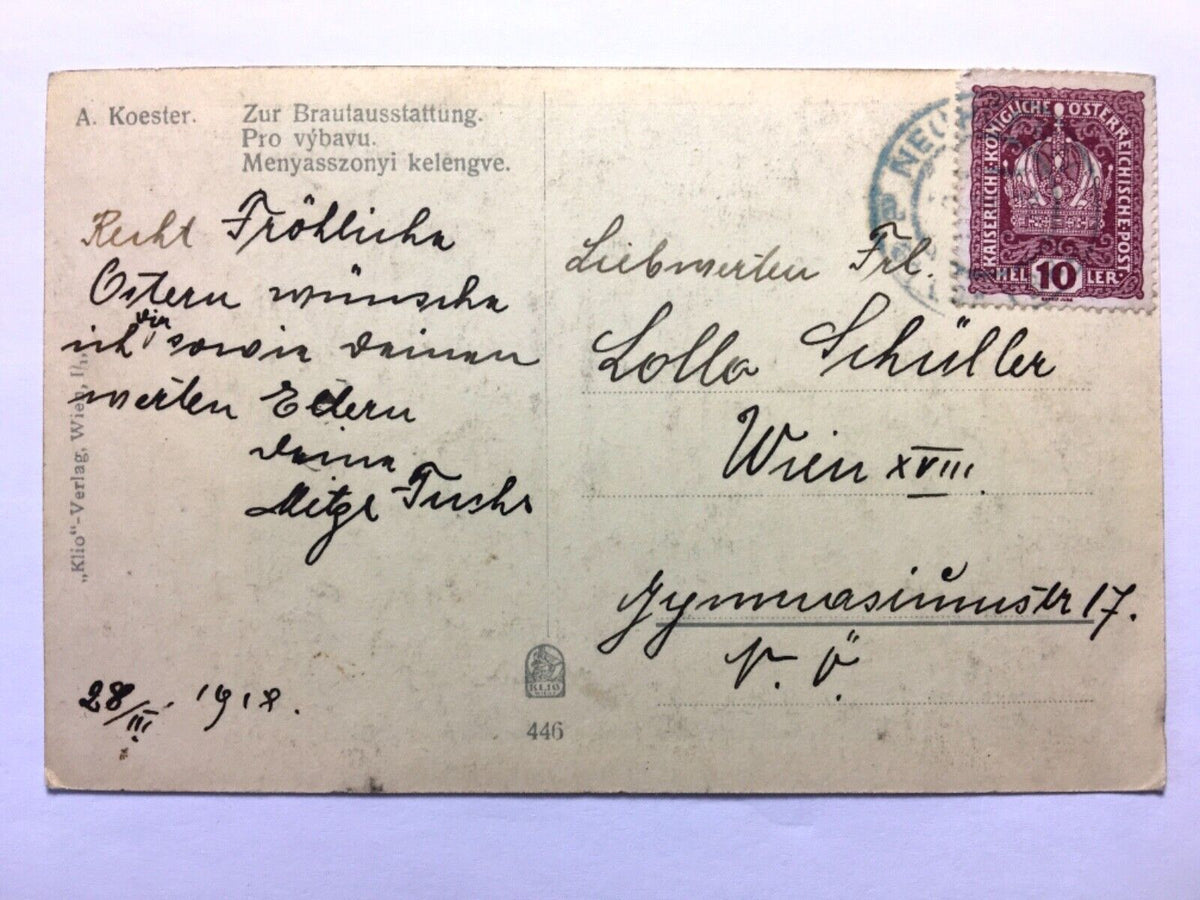 A. Koester.
Zur Brautausstattung.
Pro výbavu.
Menyasszonyi kelengye.
Recht Fröhliche
Ostern wünsche
ich dir sowie deinen
werten Eltern
deine
Mitzi Fuchs
28/III. 1918.
„Klio"-Verlag, Wien, I/1.
KLIO
446
KAISERLICHE·KÖNIGLICHE ÖSTERREICHISCHE·POST
HELLER
10
Liebwerten Frl.
Lolla Schüller
Wien XVIII.
Gymnasiumstr 17.
N. Ö.